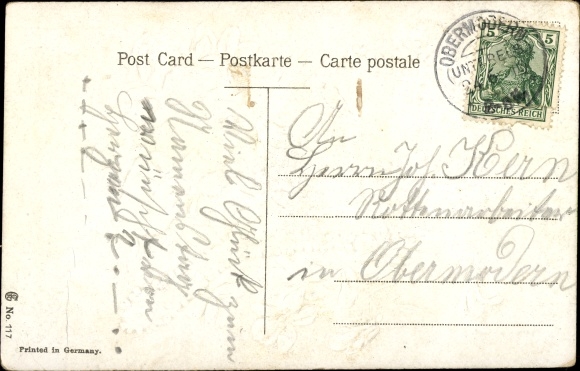 Post Card — Postkarte — Carte postale
OBERMODERN
(UNTERELS
5 5
DEUTSCHES REICH
Viel Glück zum
Namenstag
wünscht dem
An
Herrn Jos Kern
Rottenarbeiter
in Obermodern
No. 117
Printed in Germany.